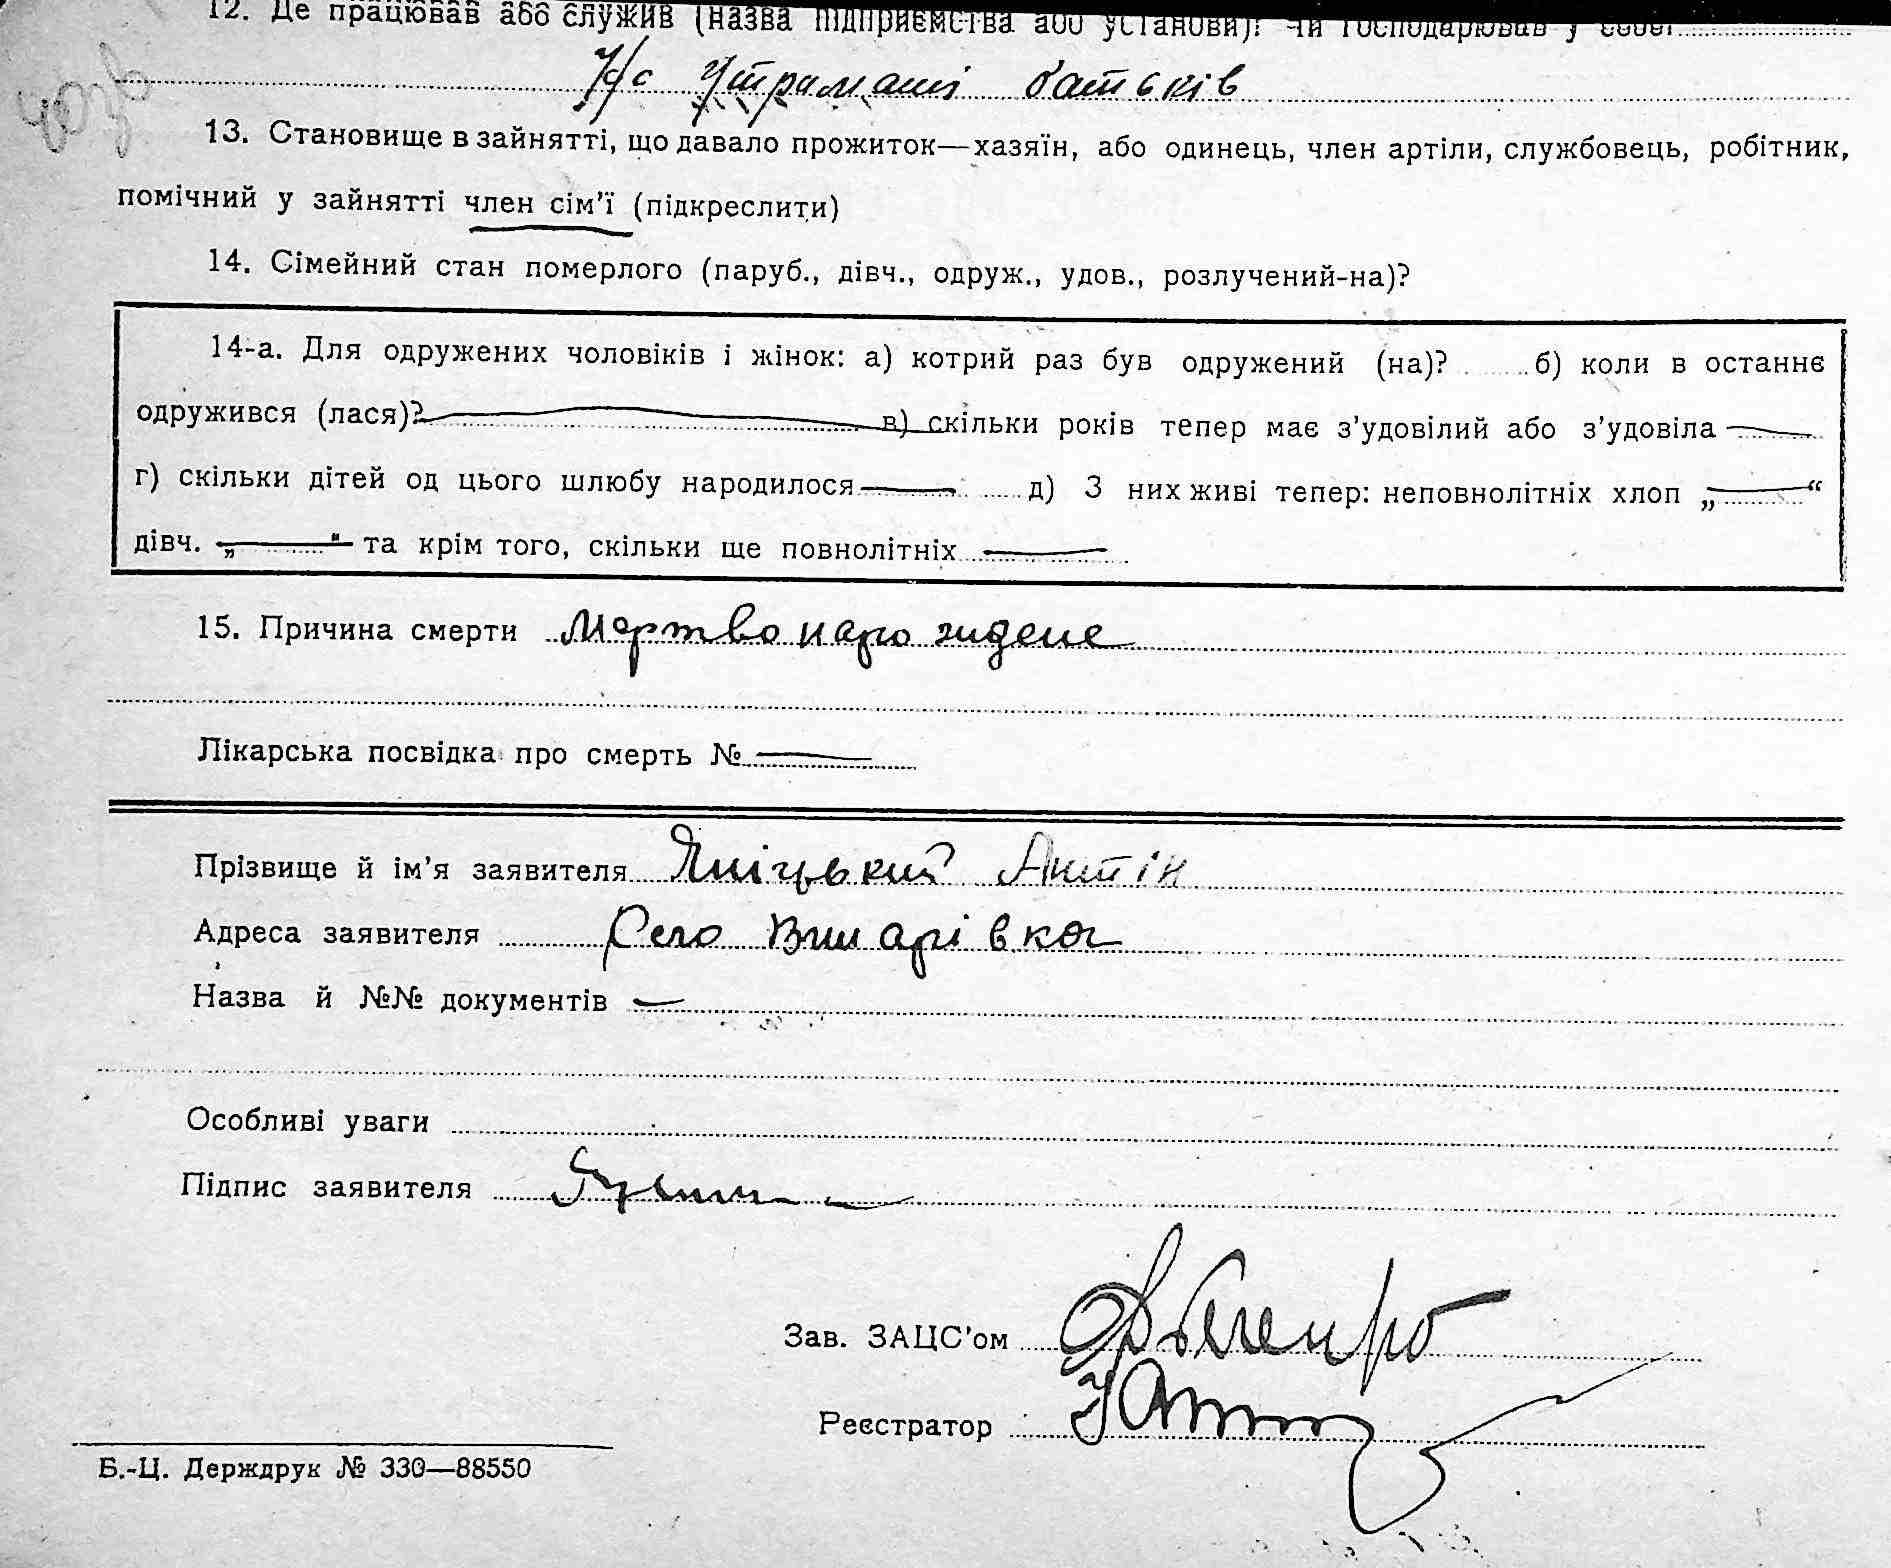 12. Де працював або служив (назва підприємства або установи)? Чи господарював у себе?
утримані батьків
13. Становище в зайнятті, що давало прожиток—хазяїн, або одинець, член артіли, службовець, робітник,
помічний у зайнятті член сім’ї (підкреслити)
14. Сімейний стан померлого (паруб., дівч., одруж., удов., розлучений-на)?
14-а. Для одружених чоловіків і жінок: а) котрий раз був одружений (на)? б) коли в останнє
одружився (лася)? — в) скільки років тепер має з’удовілий або з’удовіла —
г) скільки дітей од цього шлюбу народилося — д) З них живі тепер: неповнолітніх хлоп „—“
дівч. „—“ та крім того, скільки ще повнолітніх —
15. Причина смерти Мертво народждене
Лікарська посвідка про смерть № —
Прізвище й ім’я заявителя Яніцький Антін
Адреса заявителя Село
Назва й №№ документів —
Особливі уваги
Підпис заявителя
Зав. ЗАЦС’ом
Реєстратор
Б.-Ц. Держдрук № 330—88550